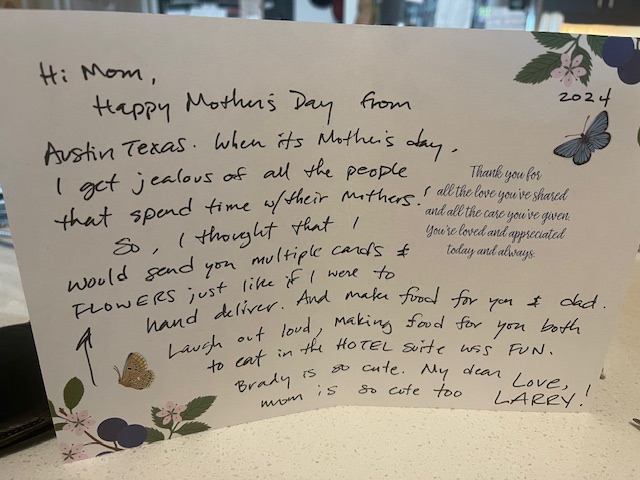 2024
Hi Mom,
Happy Mother's Day from
Austin Texas. When its Mother's day,
I get jealous of all the people
that spend time w/their Mothers!
So, I thought that I
would send you multiple cards &
FLOWERS just like if I were to
hand deliver. And make food for you & dad.
Laugh out loud, making food for you both
to eat in the HOTEL suite was FUN.
Brady is so cute. My dear Love,
mom is so cute too LARRY!
Thank you for
all the love you've shared
and all the care you've given.
You're loved and appreciated
today and always.